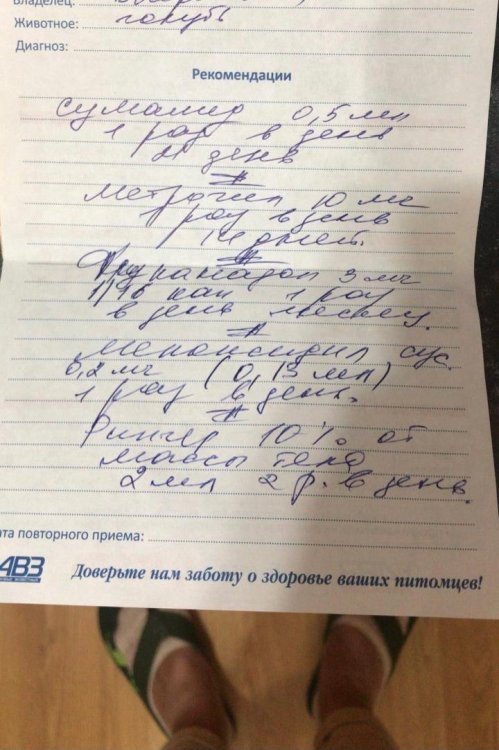 Владелец:
Животное: голубь
Диагноз:
Рекомендации
Сумамед 0,5 мл
1 раз в день
21 день
Метрогил 10 мг
1 раз в день
14 дней.
3 мг
1 раз
в день месяц.
сус.
0,2 мг (0,13 мл)
1 раз в день.
Рингер 10% от
массы тела
2 мл 2 р. в день.
ата повторного приема:
АВЗ
Доверьте нам заботу о здоровье ваших питомцев!